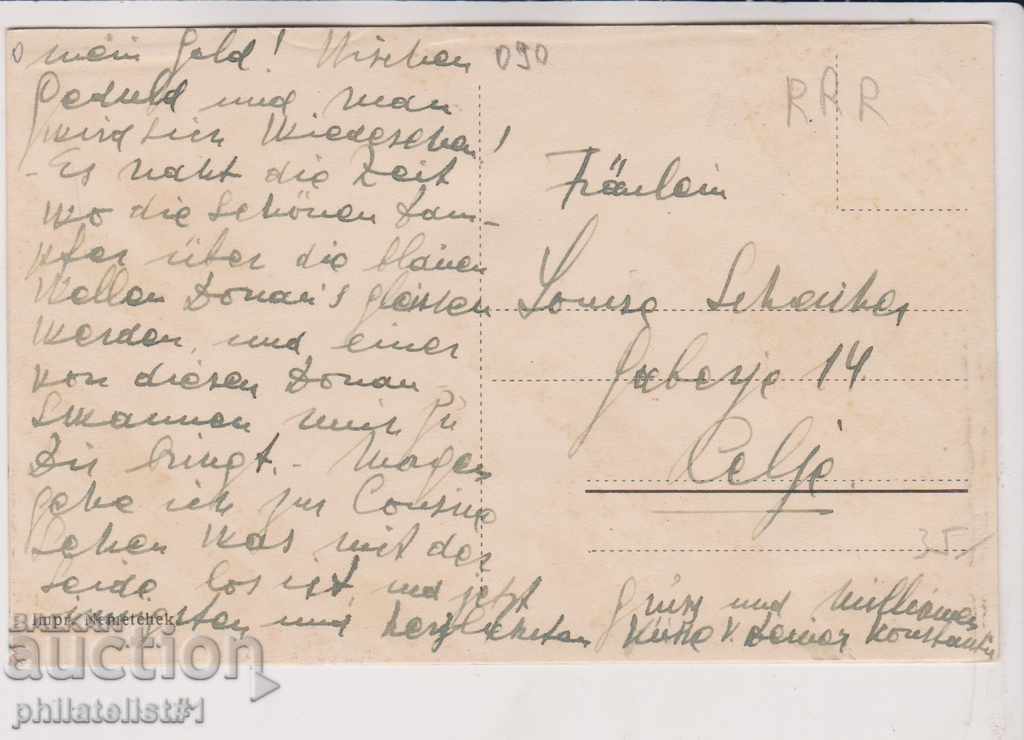 mein Gold! Wischen
Geduld und man
wird sich Wiedersehen!
- Es naht die Zeit
wo die schönen Dam-
pfer über die blauen
Wellen Donau's gleiten
werden, und einer
von diesen Donau-
Schwannen mich zu
Dir bringt. - Morgen
gehe ich zur Cousine
sehen was mit der
Seide los ist, und jetzt
und herzlichsten
Grüsse und Millionen
Küsse v. Deiner Konstantin
090
RRR
Fräulein
Louise
Gaberje 14
Celje.
35
Impr. Nemetchek
BALKAN
auction
philatelist#1